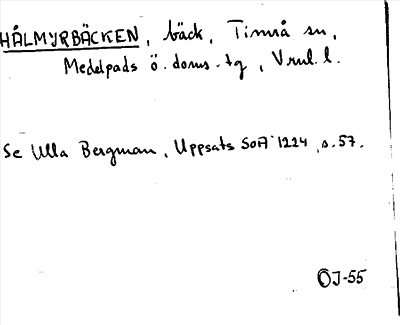 HÅLMYRBÄCKEN, bäck, Timrå sn,
Medelpads ö. doms. tg, Vnul. l.
Se Ulla Bergman, Uppsats SOA 1224, s. 57.
OJ-55